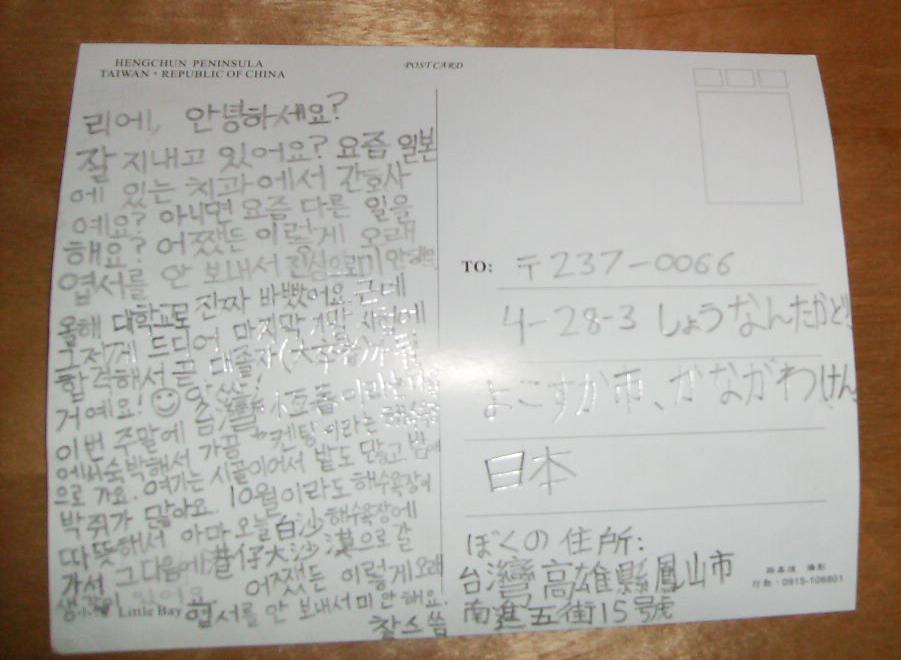 HENGCHUN PENINSULA
TAIWAN • REPUBLIC OF CHINA
POST CARD
리에, 안녕하세요?
잘 지내고 있어요? 요즘 일본
에 있는 치과에서 간호사
예요? 아니면 요즘 다른 일을
해요? 어쨌든 이렇게 오래
엽서를 안 보내서 진심으로 미안해요
올해 대학교로 진짜 바빴어요. 근데
그저께 드디어 마지막
합격해서 곧 대졸자(大卒者)
거예요! 台灣
이번 주말에 가끔 "켄팅"이라는
에서 숙박해서
으로 가요. 여기는 시골이어서 밭도 많고 밤에
박쥐가 많아요. 10월이라도 해수욕장이
따뜻해서 아마 오늘 白沙 해수욕장에
가서 그 다음에 港仔大沙漠으로 갈
생각이 있어요. 어쨌든 이렇게 오래
Little Bay 엽서를 안 보내서 미안해요.
찰스 씀
TO: 〒237-0066
4-28-3 しょうなんたか
よこすか市、かながわけん
日本
ぼくの住所:
台灣高雄縣鳳山市
南進五街15號
攝影
行動:0915-106801